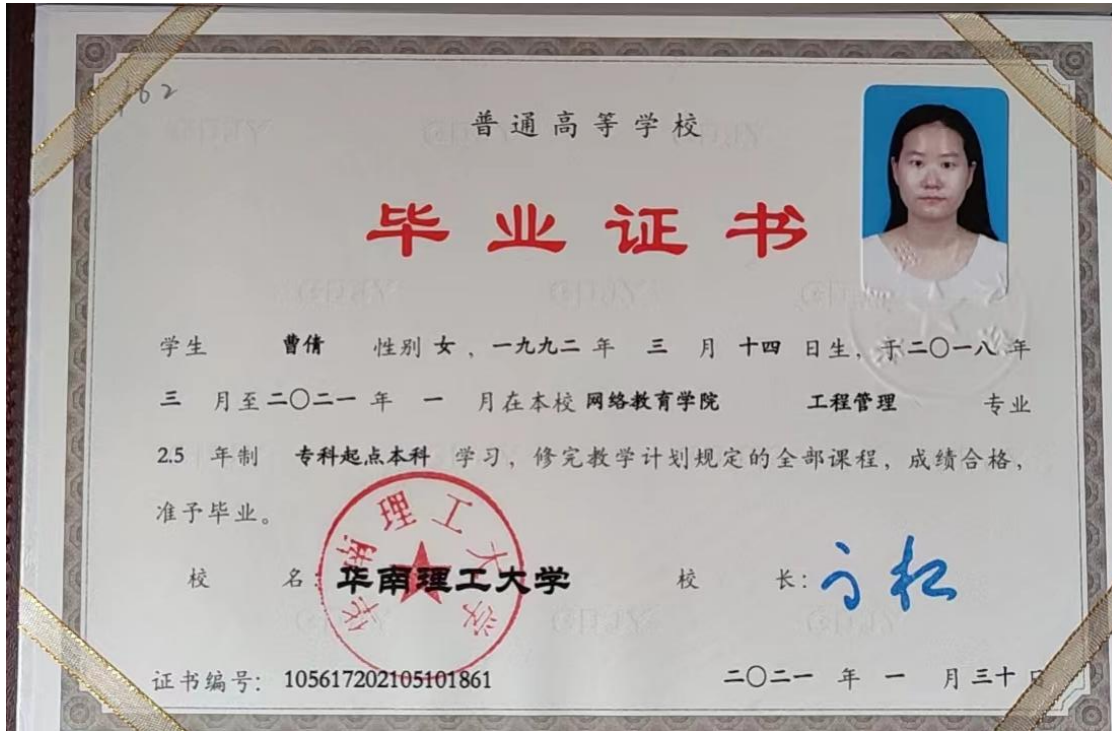 162
普通高等学校
毕业证书
学生 曹倩 性别 女 ，一九九二 年 三 月 十四 日生，于二〇一八 年
三 月至二〇二一 年 一 月在本校 网络教育学院 工程管理 专业
2.5 年制 专科起点本科 学习，修完教学计划规定的全部课程，成绩合格，
准予毕业。
校 名：华南理工大学 校 长：
华南理工大学
证书编号： 105617202105101861 二〇二一 年 一 月 三十 日